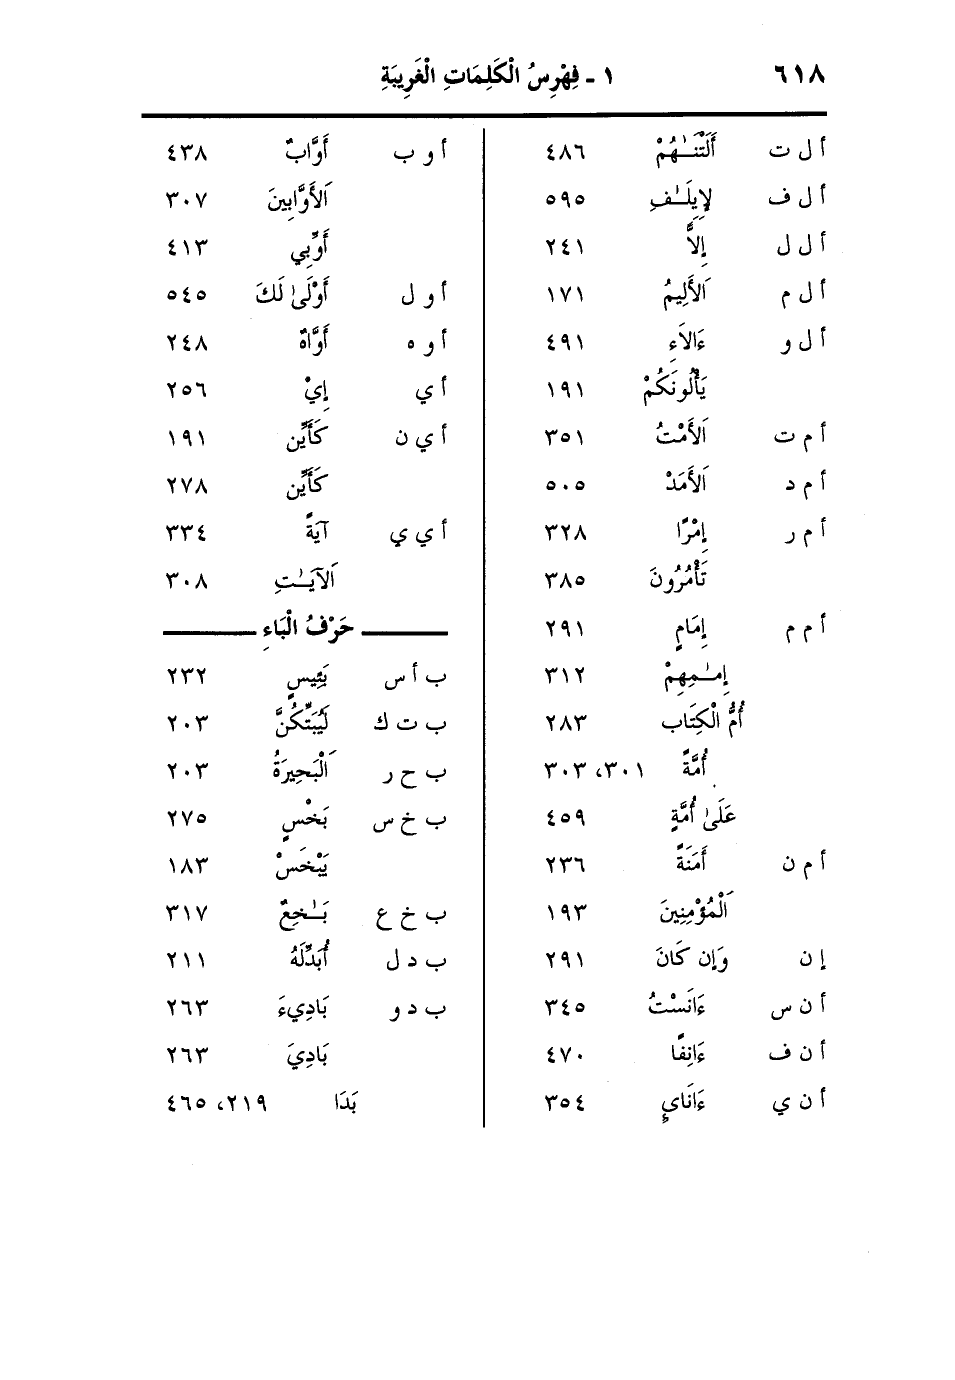 ٦١٨
١ - فِهْرِسُ الْكَلِمَاتِ الْغَرِيبَةِ
أ ل ت أَلَتْنَـٰهُمْ ٤٨٦
أ ل ف لِإِيلَـٰفِ ٥٩٥
أ ل ل إِلاًّ ٢٤١
أ ل م اَلأَلِيمُ ١٧١
أ ل و ءَالاَءِ ٤٩١
يَأْلُونَكُمْ ١٩١
أ م ت اَلأَمْتُ ٣٥١
أ م د اَلأَمَدْ ٥٠٥
أ م ر إِمْرًا ٣٢٨
تَأْمُرُونَ ٣٨٥
أ م م إِمَامٍ ٢٩١
إِمـٰمِهِمْ ٣١٢
أُمُّ الْكِتَاب ٢٨٣
أُمَّةً ٣٠١، ٣٠٣
عَلَىٰ أُمَّةٍ ٤٥٩
أ م ن أَمَنَةً ٢٣٦
اَلْمُؤْمِنِينَ ١٩٣
إ ن وَإِن كَانَ ٢٩١
أ ن س ءَانَسْتُ ٣٤٥
أ ن ف ءَانِفًا ٤٧٠
أ ن ي ءَانَايِٕ ٣٥٤
أ و ب أَوَّابٌ ٤٣٨
اَلأَوَّابِينَ ٣٠٧
أَوِّبِي ٤١٣
أ و ل أَوْلَىٰ لَكَ ٥٤٥
أ و ه أَوَّاهٌ ٢٤٨
أ ي إِيْ ٢٥٦
أ ي ن كَأَيِّن ١٩١
كَأَيِّن ٢٧٨
أ ي ي آيَةً ٣٣٤
اَلآيَـٰتِ ٣٠٨
حَرْفُ الْبَاءِ
ب أ س بَئِيسٍ ٢٣٢
ب ت ك لَيُبَتِّكُنَّ ٢٠٣
ب ح ر اَلْبَحِيرَةُ ٢٠٣
ب خ س بَخْسٍ ٢٧٥
يَبْخَسْ ١٨٣
ب خ ع بَـٰخِعٌ ٣١٧
ب د ل أُبَدِّلَهُ ٢١١
ب د و بَادِيءَ ٢٦٣
بَادِيَ ٢٦٣
بَدَا ٢١٩، ٤٦٥